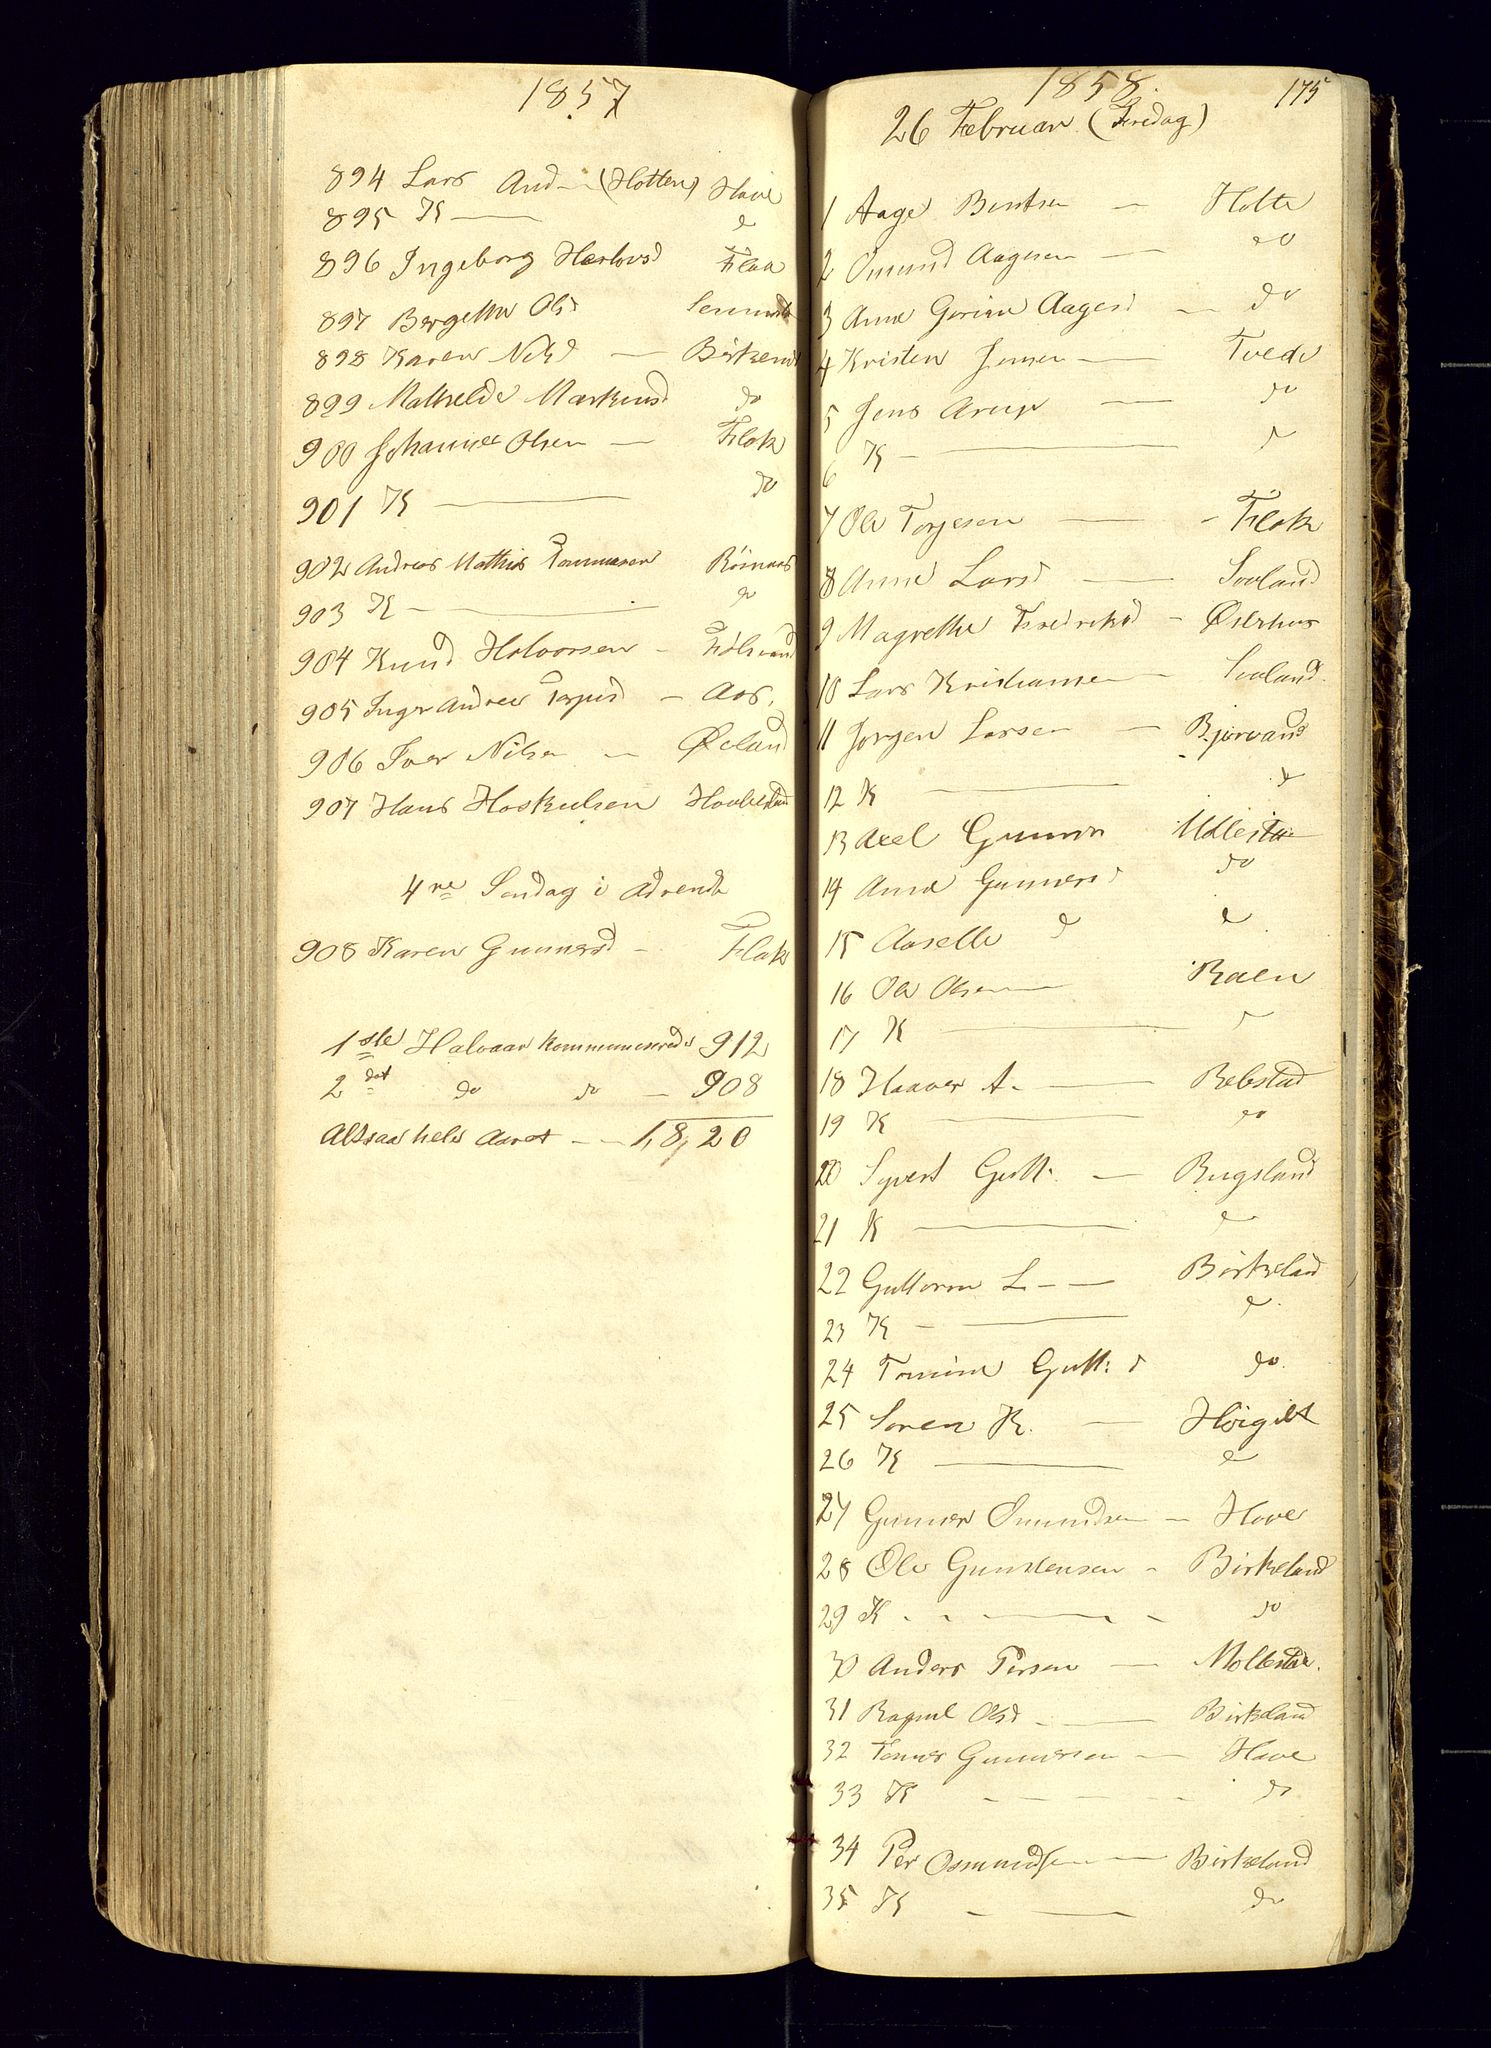 1857
894 Lars And— (Hotten) Have
895 K — d
896 Ingeborg Herlovsd Flaa
897 Bergette Olsd
898 Karen Nilsd — Birkenes
899 Mathelde Markusd do
900 Johannes Olsen — Flak
901 K — do
902 Andreas Mathias Tommesen
903 K — do
904 Knud Halvorsen -
905 Inger Andrea Terjesd — Aas.
906 Iver Nilsen — Øeland
907 Hans Hoskulsen
4re Søndag i Advendt
908 Karen Gunnersd - Flak
1ste Halvaar kommunicerede 912
2det do do — 908
Altsaa hele Aaret — 1,8,20
1858. 175
26 Februar (Fredag)
1 Aage Bentsen — Holte
2 Omund Aagesen — do
3 Anne Gurine Aagesd — do
4 Kristen Jensen — Tvede
5 Jens Arup — do
6 K — d
7 Ole Terjesen — Flak
8 Anne Larsd — Svaland
9 Magrethe Fredriksd - Øverhus
10 Lars Kristiansen — Svaland
11 Jørgen Larsen — Bjorvand
12 K — d
13 Axel Gunners Mollestad
14 Anne Gunnersd do
15 Aaselle d d
16 Ole Olsen — Raen
17 K — d
18 Haaver A. — Rebstad
19 K — do
20 Syvert Gutt. — Rugsland
21 K — d
22 Guttorm L — Birkeland
23 K — d
24 Tomine Gutt: d do
25 Soren K. — Høigilt
26 K — d
27 Gunner Omundsen — Hove
28 Ole Gunstensen - Birkeland
29 K — do
30 Anders Persen — Mollestad.
31 Ragnil Olsd — Birkeland
32 Tomes Gunnersen — Have
33 K — do
34 Per Osmundsen — Birkeland
35 K — do